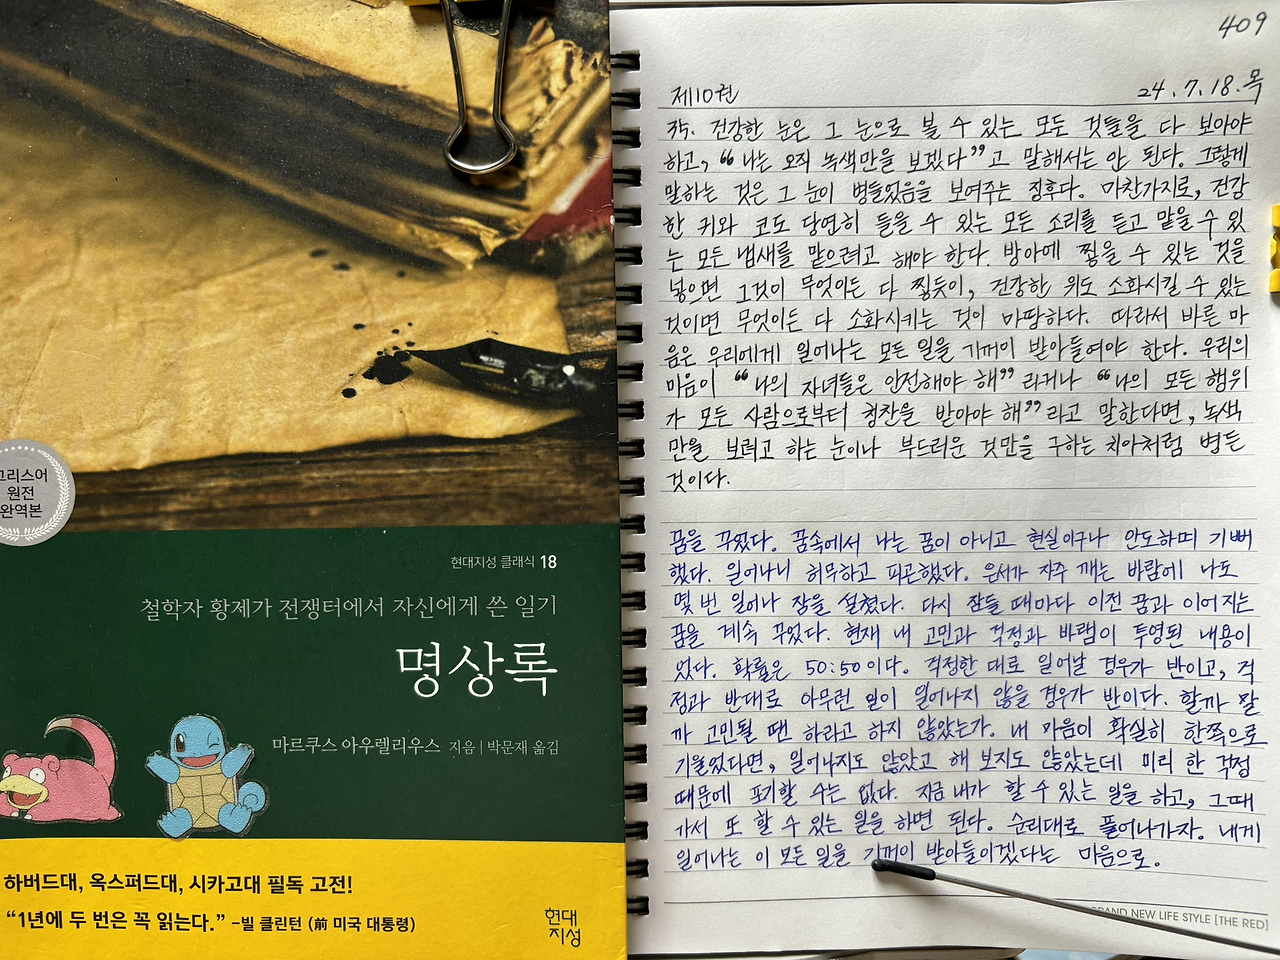 그리스어
원전
완역본
현대지성 클래식 18
철학자 황제가 전쟁터에서 자신에게 쓴 일기
명상록
마르쿠스 아우렐리우스 지음 | 박문재 옮김
하버드대, 옥스퍼드대, 시카고대 필독 고전!
“1년에 두 번은 꼭 읽는다.” –빌 클린턴 (前 미국 대통령)
현대
지성
409
제10권 24.7.18.목
35. 건강한 눈은 그 눈으로 볼 수 있는 모든 것들을 다 보아야
하고, “나는 오직 녹색만을 보겠다”고 말해서는 안 된다. 그렇게
말하는 것은 그 눈이 병들었음을 보여주는 징후다. 마찬가지로, 건강
한 귀와 코도 당연히 들을 수 있는 모든 소리를 듣고 맡을 수 있
는 모든 냄새를 맡으려고 해야 한다. 방아에 찧을 수 있는 것을
넣으면 그것이 무엇이든 다 찧듯이, 건강한 위도 소화시킬 수 있는
것이면 무엇이든 다 소화시키는 것이 마땅하다. 따라서 바른 마
음은 우리에게 일어나는 모든 일을 기꺼이 받아들여야 한다. 우리의
마음이 “나의 자녀들은 안전해야 해”라거나 “나의 모든 행위
가 모든 사람으로부터 칭찬을 받아야 해”라고 말한다면, 녹색
만을 보려고 하는 눈이나 부드러운 것만을 구하는 치아처럼 병든
것이다.
꿈을 꾸었다. 꿈속에서 나는 꿈이 아니고 현실이구나 안도하며 기뻐
했다. 일어나니 허무하고 피곤했다. 은서가 자주 깨는 바람에 나도
몇 번 일어나 잠을 설쳤다. 다시 잠들 때마다 이전 꿈과 이어지는
꿈을 계속 꾸었다. 현재 내 고민과 걱정과 바램이 투영된 내용이
었다. 확률은 50:50이다. 걱정한 대로 일어날 경우가 반이고, 걱
정과 반대로 아무런 일이 일어나지 않을 경우가 반이다. 할까 말
까 고민될 땐 하라고 하지 않았는가. 내 마음이 확실히 한쪽으로
기울었다면, 일어나지도 않았고 해 보지도 않았는데 미리 한 걱정
때문에 포기할 수는 없다. 지금 내가 할 수 있는 일을 하고, 그때
가서 또 할 수 있는 일을 하면 된다. 순리대로 풀어나가자. 내게
일어나는 이 모든 일을 기꺼이 받아들이겠다는 마음으로.
BRAND NEW LIFE STYLE [THE RED]